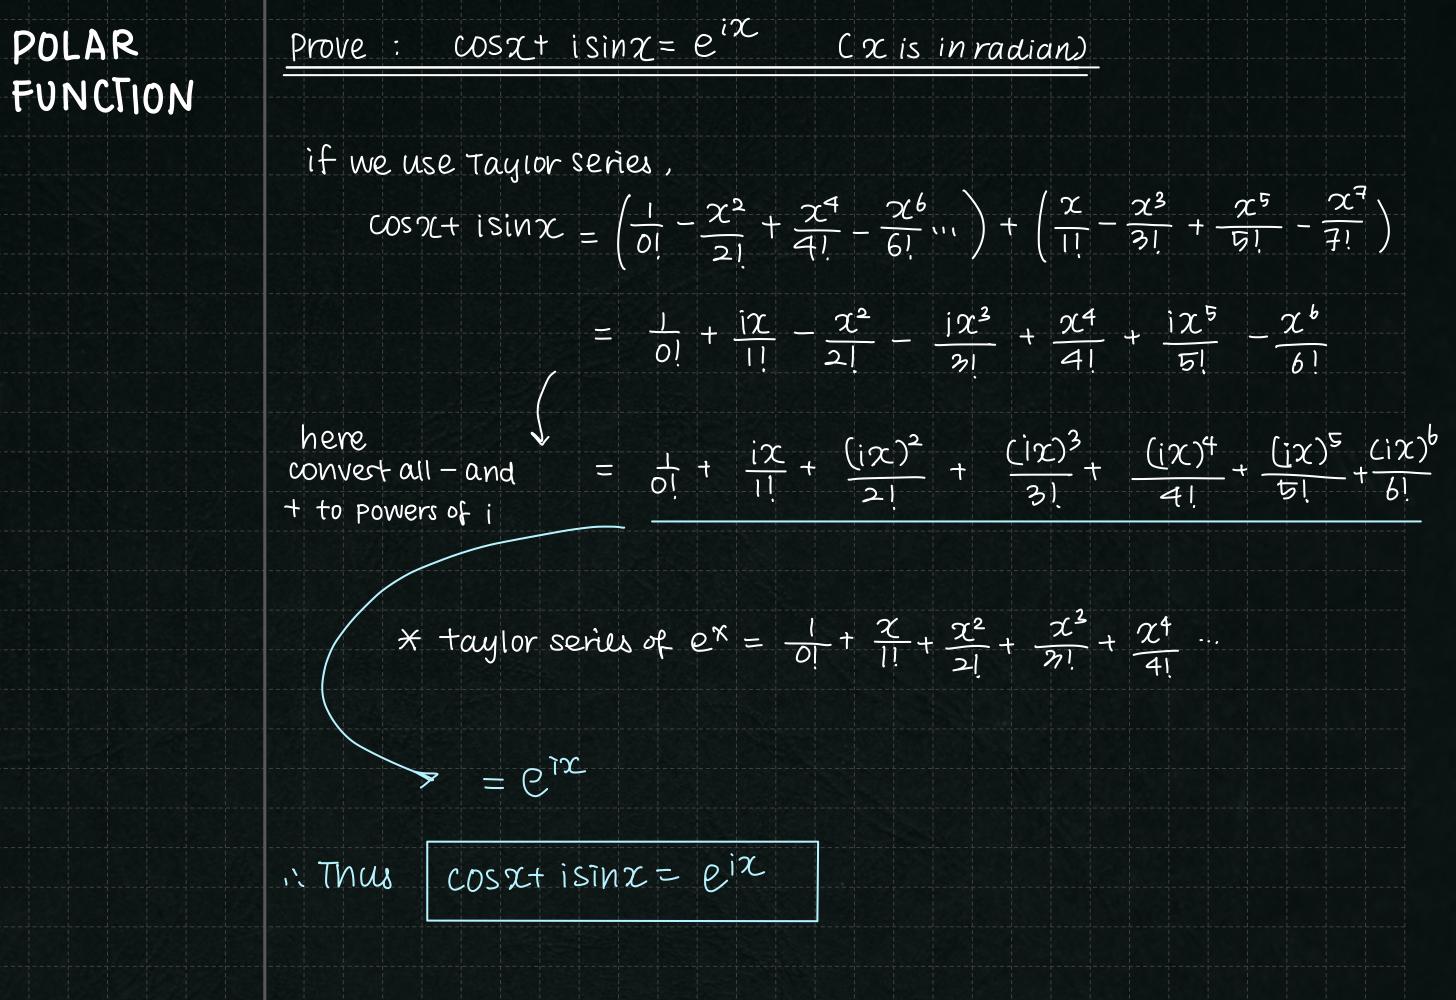 POLAR
FUNCTION
Prove : cosx + isinx = e^{ix} (x is in radian)
if we use Taylor series,
cosx + isinx = (1/0! - x²/2! + x⁴/4! - x⁶/6! ...) + (x/1! - x³/3! + x⁵/5! - x⁷/7!)
= 1/0! + ix/1! - x²/2! - ix³/3! + x⁴/4! + ix⁵/5! - x⁶/6!
here
convert all - and
+ to powers of i
= 1/0! + ix/1! + (ix)²/2! + (ix)³/3! + (ix)⁴/4! + (ix)⁵/5! + (ix)⁶/6!
* taylor series of e^x = 1/0! + x/1! + x²/2! + x³/3! + x⁴/4! ...
= e^{ix}
∴ Thus cosx + isinx = e^{ix}